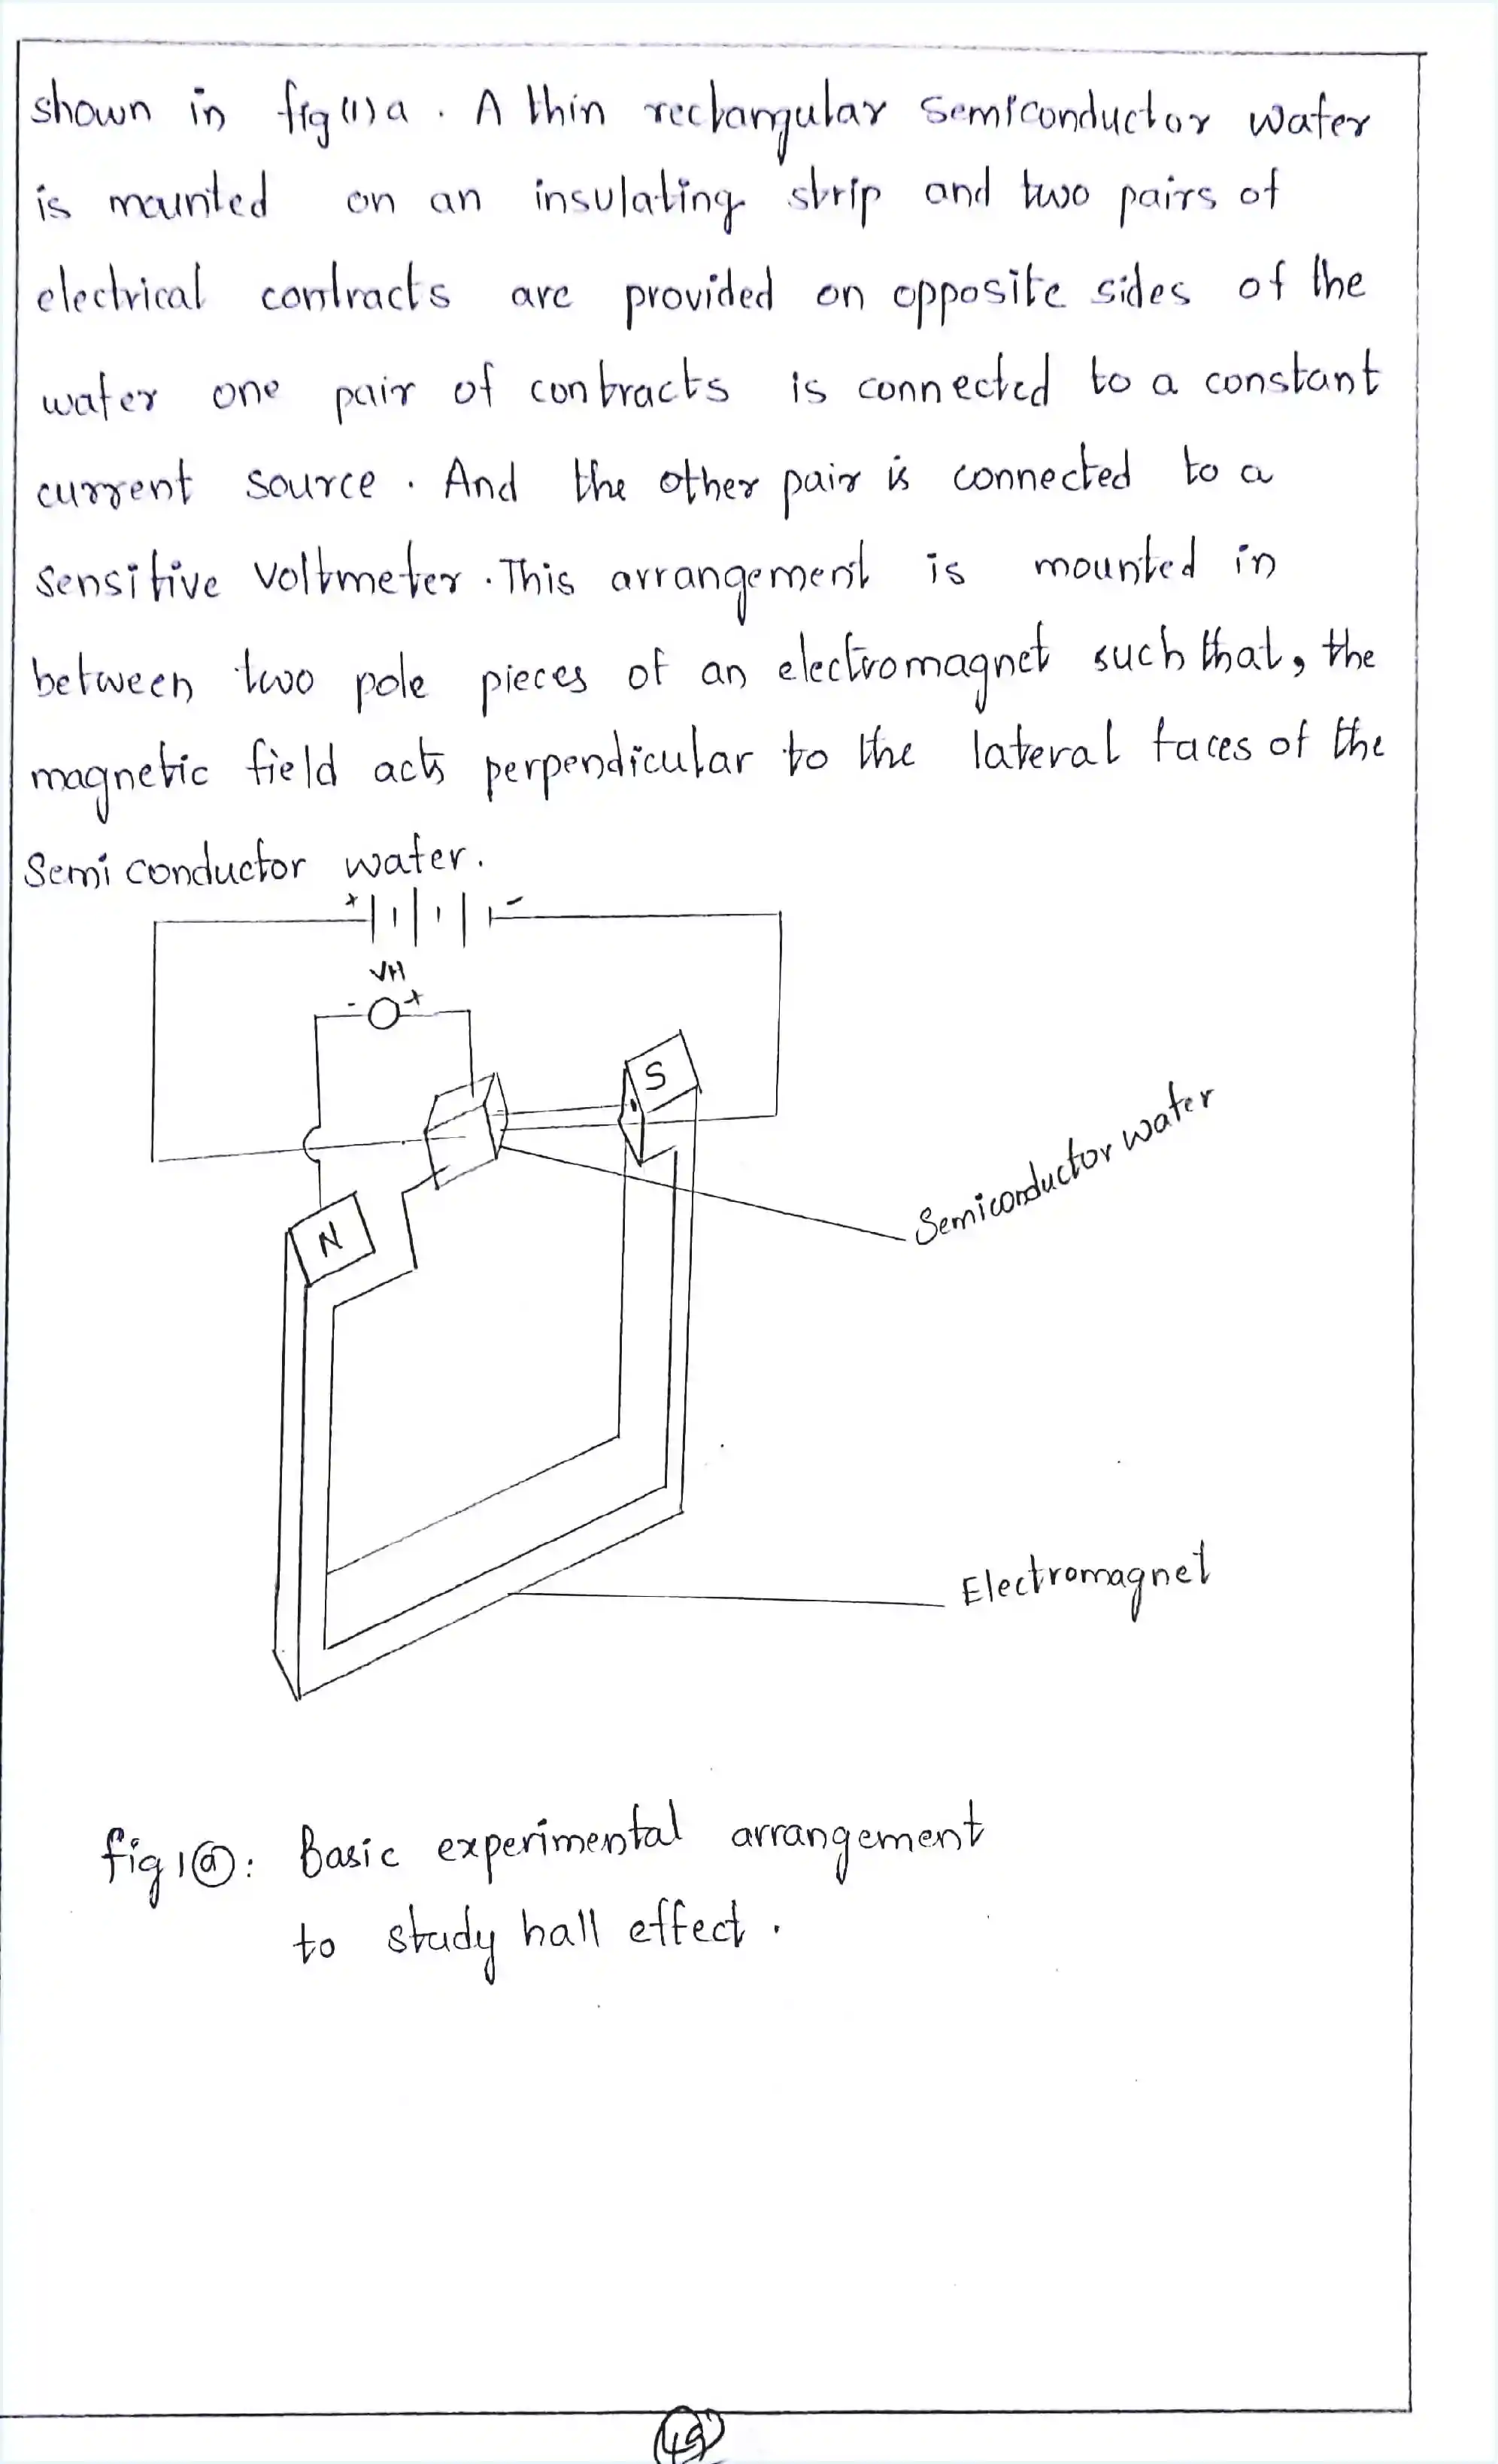 shown in fig (1) a . A thin rectangular semiconductor water
is mounted on an insulating strip and two pairs of
electrical contracts are provided on opposite sides of the
water one pair of contracts is connected to a constant
current source . And the other pair is connected to a
sensitive voltmeter . This arrangement is mounted in
between two pole pieces of an electromagnet such that, the
magnetic field acts perpendicular to the lateral faces of the
Semi conductor water.
+ -
VH
- +
S
Semiconductor water
N
Electromagnet
fig 1 (a) : Basic experimental arrangement
to study hall effect .